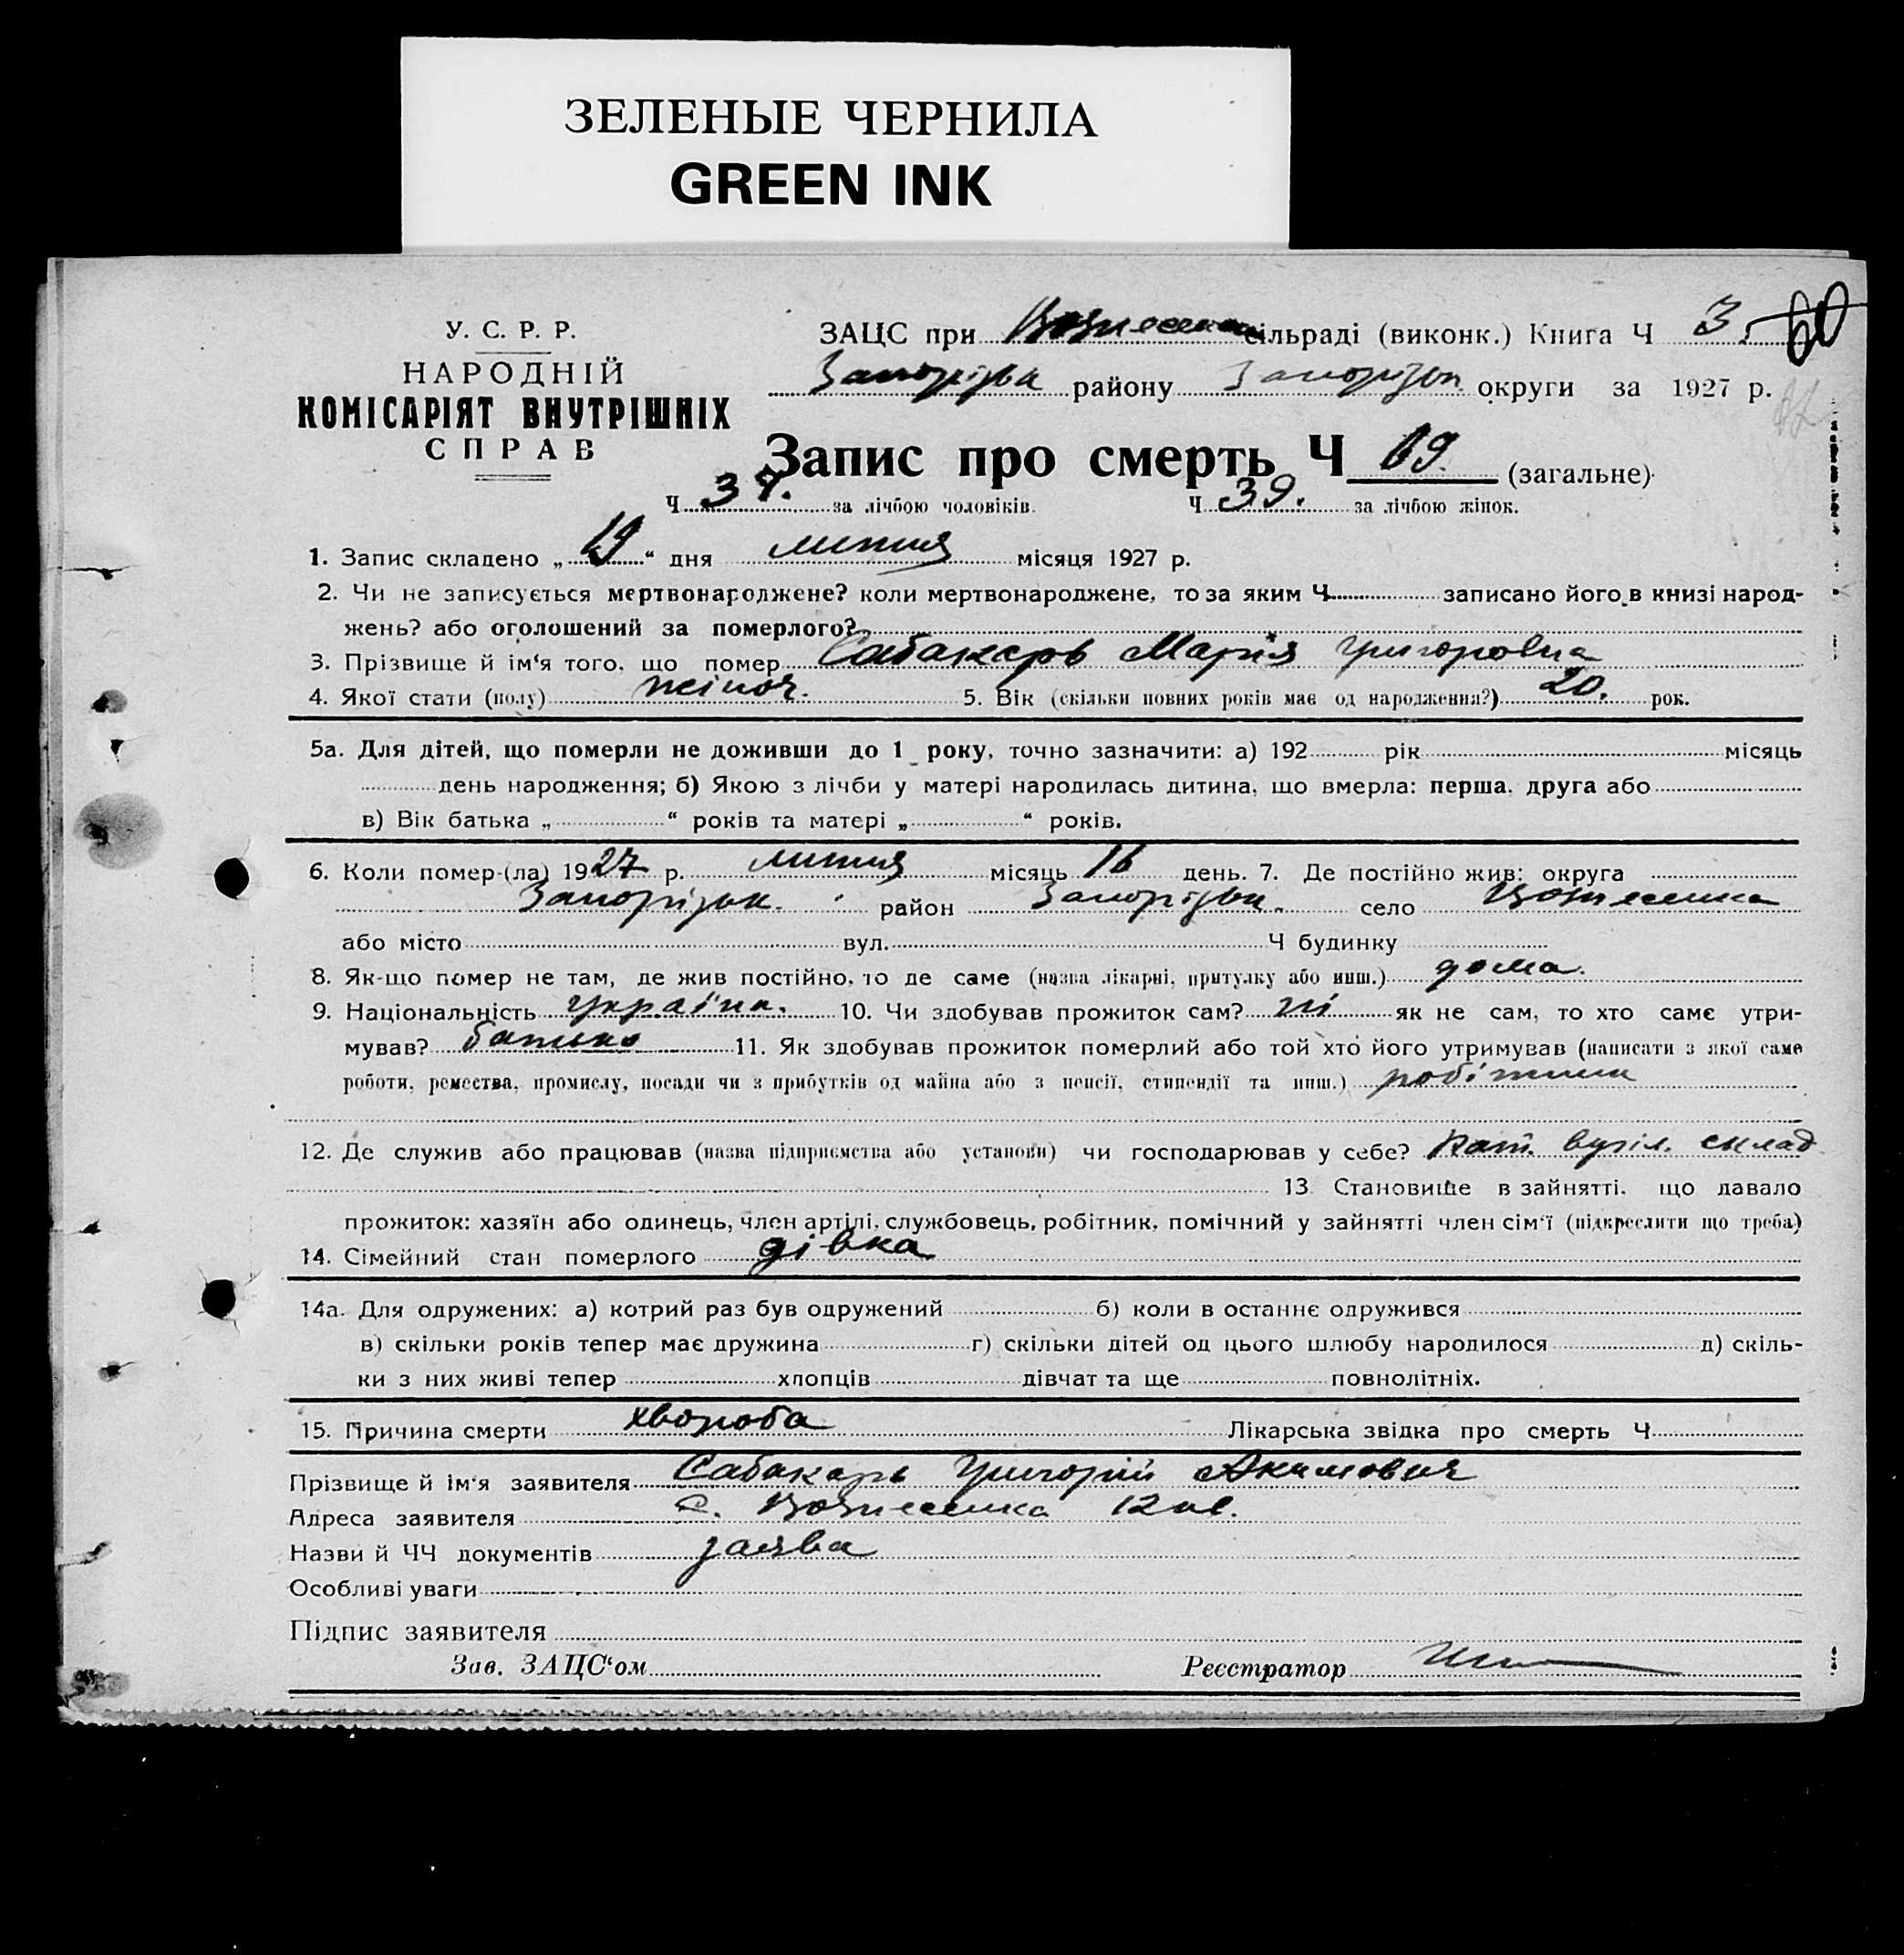 ЗЕЛЕНЫЕ ЧЕРНИЛА
GREEN INK
У. С. Р. Р.
НАРОДНІЙ
КОМІСАРІЯТ ВНУТРІШНІХ
СПРАВ
ЗАЦС при Вознесенск сільраді (виконк.) Книга Ч 3.
Запорізька району Запорізьк. округи за 1927 р.
Запис про смерть Ч 69. (загальне)
Ч 37. за лічбою чоловіків. Ч 39. за лічбою жінок.
1. Запис складено „ 19 “ дня липня місяця 1927 р.
2. Чи не записується мертвонароджене? коли мертвонароджене, то за яким Ч записано його в книзі народ-
жень? або оголошений за померлого?
3. Прізвище й ім‘я того, що помер Сабакарь Марія Григоровна
4. Якої стати (полу) жіноч. 5. Вік (скільки повних років має од народження?) 20. рок.
5а. Для дітей, що померли не доживши до 1 року, точно зазначити: а) 192 рік місяць
день народження; б) Якою з лічби у матері народилась дитина, що вмерла: перша, друга або
в) Вік батька „ “ років та матері „ “ років.
6. Коли помер-(ла) 1927 р. липня місяць 16 день. 7. Де постійно жив: округа
Запорізьк. район Запорізьк. село Вознесенка
або місто вул. Ч будинку
8. Як-що помер не там, де жив постійно, то де саме (назва лікарні, притулку або инш.) дома.
9. Національність україн. 10. Чи здобував прожиток сам? ні як не сам, то хто саме утри-
мував? батько 11. Як здобував прожиток померлий або той хто його утримував (написати з якої саме
роботи, ремества, промислу, посади чи з прибутків од майна або з пенсії, стипендії та инш.) робітник
12. Де служив або працював (назва підприємства або установи) чи господарював у себе? Кат. вугіл. склад
13. Становище в зайнятті, що давало
прожиток: хазяїн або одинець, член артілі, службовець, робітник, помічний у зайнятті член сім‘ї (підкреслити що треба)
14. Сімейний стан померлого дівка
14а. Для одружених: а) котрий раз був одружений б) коли в останнє одружився
в) скільки років тепер має дружина г) скільки дітей од цього шлюбу народилося д) скіль-
ки з них живі тепер хлопців дівчат та ще повнолітніх.
15. Причина смерти хвороба Лікарська звідка про смерть Ч
Прізвище й ім‘я заявителя Сабакарь Григорій Акимович
Адреса заявителя с. Вознесенка
Назви й ЧЧ документів заява
Особливі уваги
Підпис заявителя
Зав. ЗАЦС‘ом Реєстратор